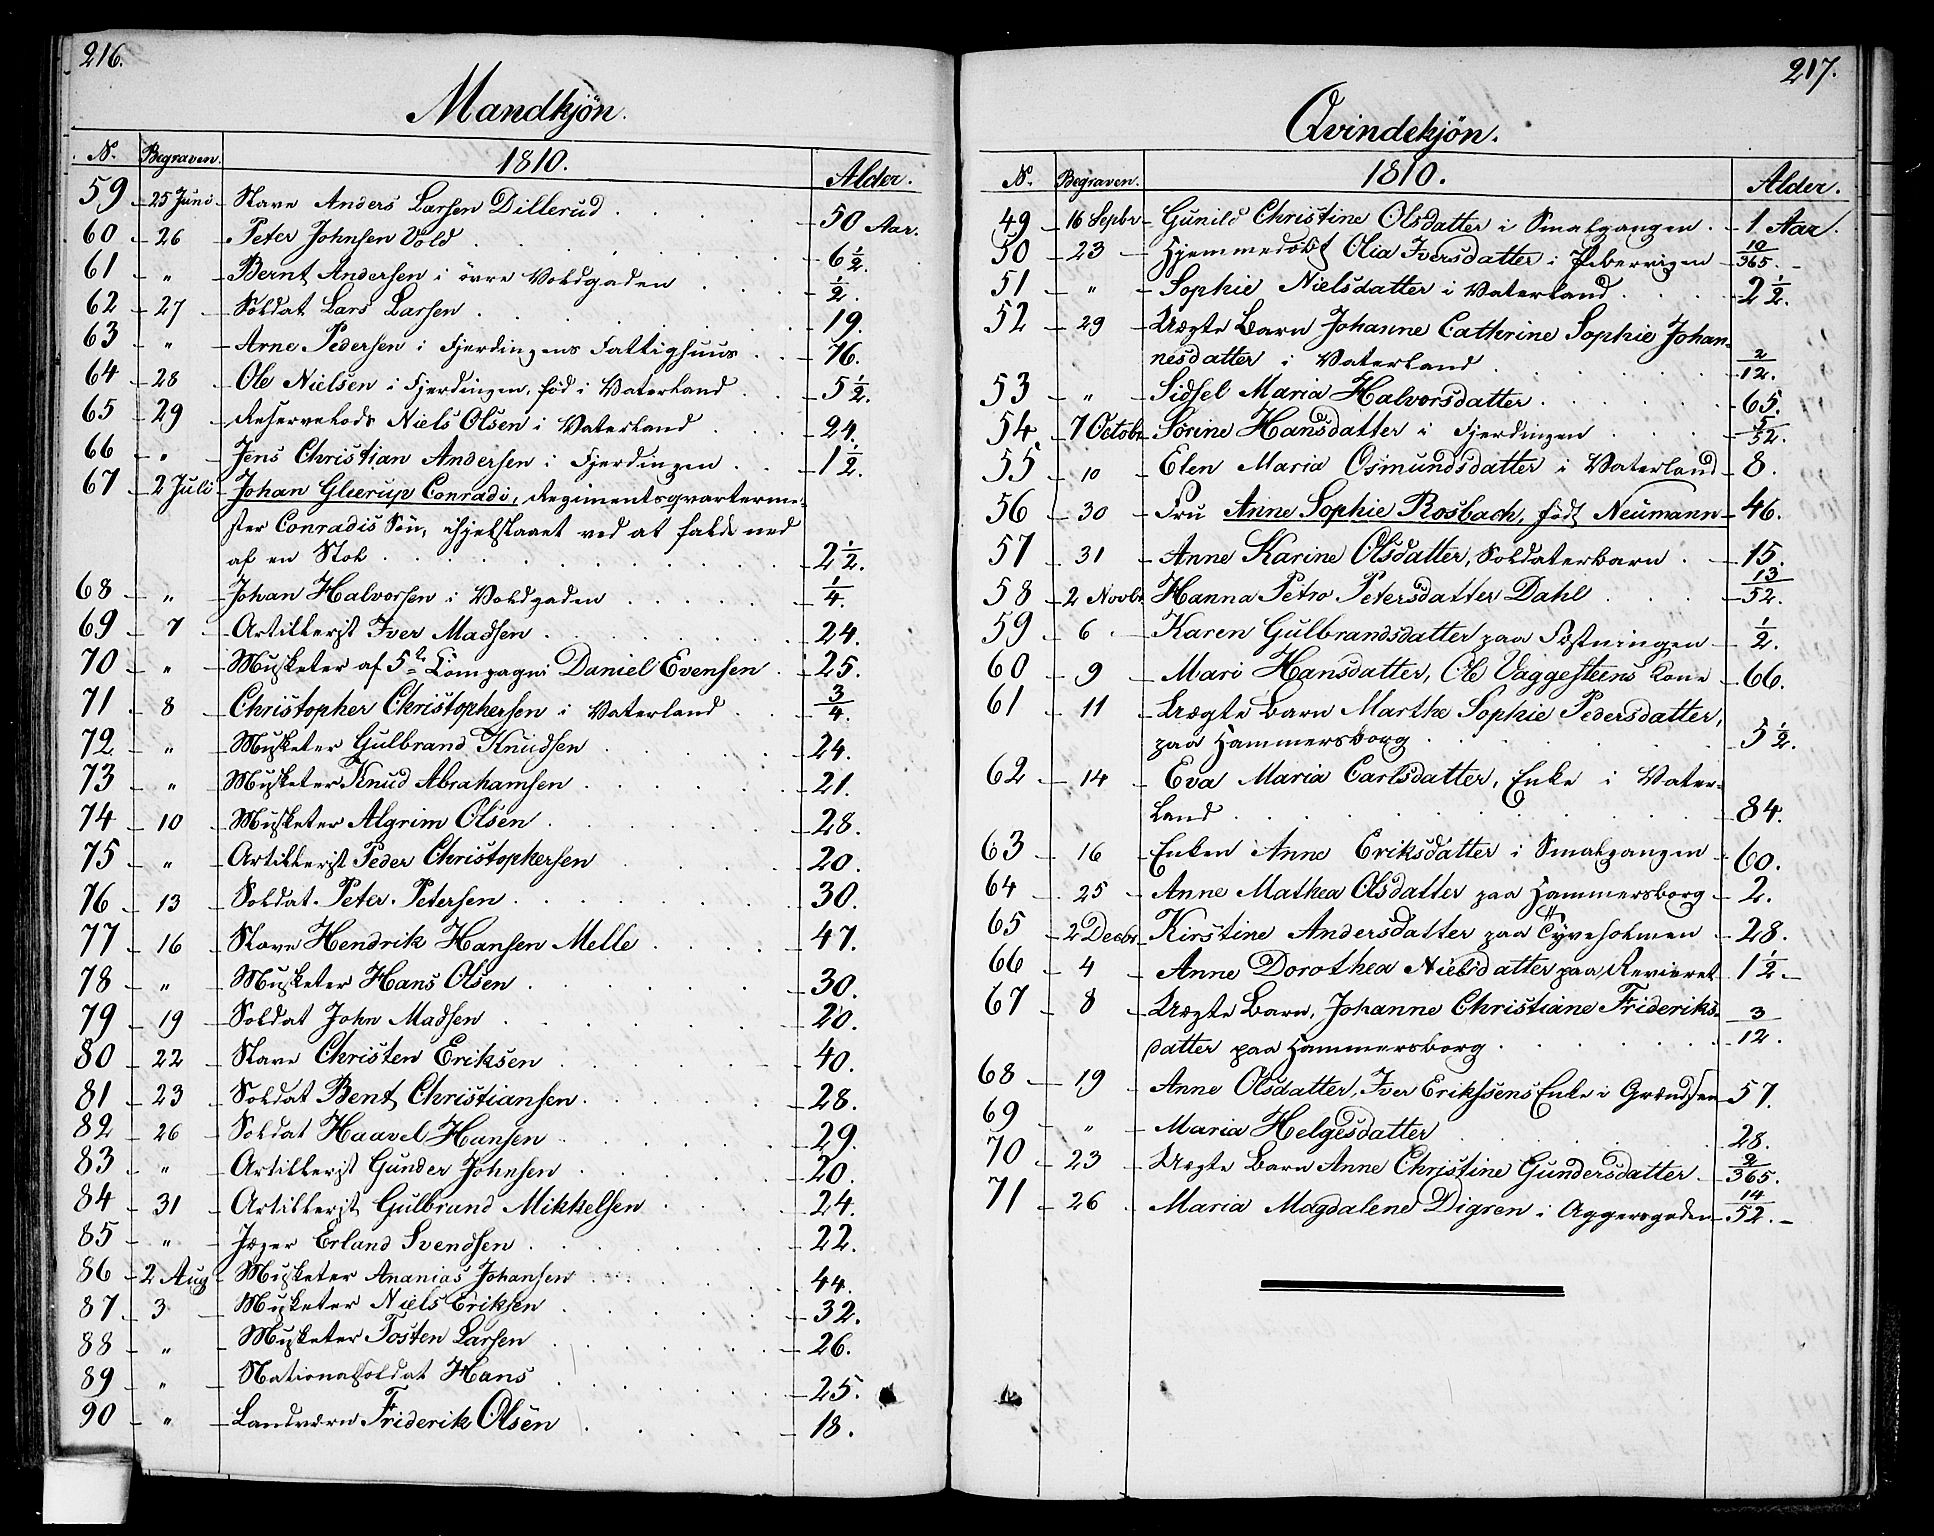 216.
Mandkjön.
N. Begraven. 1810. Alder.
59 25 Juni Slave Anders Larsen Dillerud 50 Aar.
60 26 Peter Johnsen Vold 6 1/2.
61 " Bernt Andersen i övre Voldgaden 1/2.
62 27 Soldat Lars Larsen 19.
63 " Arne Pedersen i Fjerdingens Fattighuus 76.
64 28 Ole Nielsen i Fjerdingen, född i Vaterland 5 1/2.
65 29 Niels Olsen i Vaterland 24.
66 " Jens Christian Andersen i Fjerdingen 1 1/2.
67 2 Juli Johan Gleerup Conradi, Regimentsqvarterme-
ster Conradis Sön, ihjelslaaet ved at falde ned
af en Stol 2 1/2.
68 " Johan Halvorsen i Voldgaden 1/4.
69 7 Artillerist Iver Madsen 24.
70 " Musketer af 5te Compagni Daniel Evensen 25.
71 8 Christopher Christophersen i Vaterland 3/4.
72 " Musketer Gulbrand Knudsen 24.
73 " Musketer Knud Abrahamsen 21.
74 10 Musketer Algrim Olsen 28.
75 " Artillerist Peder Christophersen 20.
76 13 Soldat Peter Petersen 30.
77 16 Slave Hendrik Hansen Melle 47.
78 " Musketer Hans Olsen 30.
79 19 Soldat John Madsen 20.
80 22 Slave Christen Eriksen 40.
81 23 Soldat Bent Christiansen 28.
82 26 Soldat Haavel Hansen 29.
83 " Artillerist Gunder Johnsen 20.
84 31 Artillerist Gulbrand Mikkelsen 24.
85 " Jæger Erland Svendsen 22.
86 2 Aug Musketer Ananias Johansen 44.
87 3 Musketer Niels Eriksen 32.
88 " Musketer Tosten Larsen 26.
89 " Nationalsoldat Hans 25.
90 " Landværn Friderik Olsen 18.
217.
Qvindekjön.
N. Begraven. 1810. Alder.
49 16 Septbr Gunild Christine Olsdatter i Smalgangen 1 Aar.
50 23 Hjemmedöbt Olia Iversdatter i Pibervigen 10/365.
51 " Sophie Nielsdatter i Vaterland 2 1/2.
52 29 Uægte Barn Johanne Cathrine Sophie Johan-
nesdatter i Vaterland 2/12.
53 " Sidsel Maria Halvorsdatter 65.
54 7 Octobr Sörine Hansdatter i Fjerdingen 3/52.
55 10 Elen Maria Osmundsdatter i Vaterland 8.
56 30 Fru Anne Sophie Rosbach, född Neumann 46.
57 31 Anne Karine Olsdatter, Soldaterbarn 15.
58 2 Novbr Hanna Petro Petersdatter Dahl 13/52.
59 6 Karen Gulbrandsdatter paa Fæstningen 1/2.
60 9 Mari Hansdatter, Ole Vaggesteens Kone 66.
61 11 Uægte Barn Marthe Sophie Pedersdatter,
paa Hammersborg 5 1/2.
62 14 Eva Maria Carlsdatter, Enke i Vater-
land 84.
63 16 Enken Anne Eriksdatter i Smalgangen 60.
64 25 Anne Mathea Olsdatter paa Hammersborg 2.
65 2 Decbr Kirstine Andersdatter paa Tyveholmen 28.
66 4 Anne Dorothea Nielsdatter paa Revieret 1 1/2
67 8 Uægte Barn, Johanne Christiane Frideriks-
datter paa Hammersborg 3/12.
68 19 Anne Olsdatter, Iver Erikssens Enke i Grændsen 57.
69 " Maria Helgesdatter 28.
70 23 Uægte Barn Anne Christine Gundersdatter 2/365.
71 26 Maria Magdalene Digren i Aggersgaden 14/52.